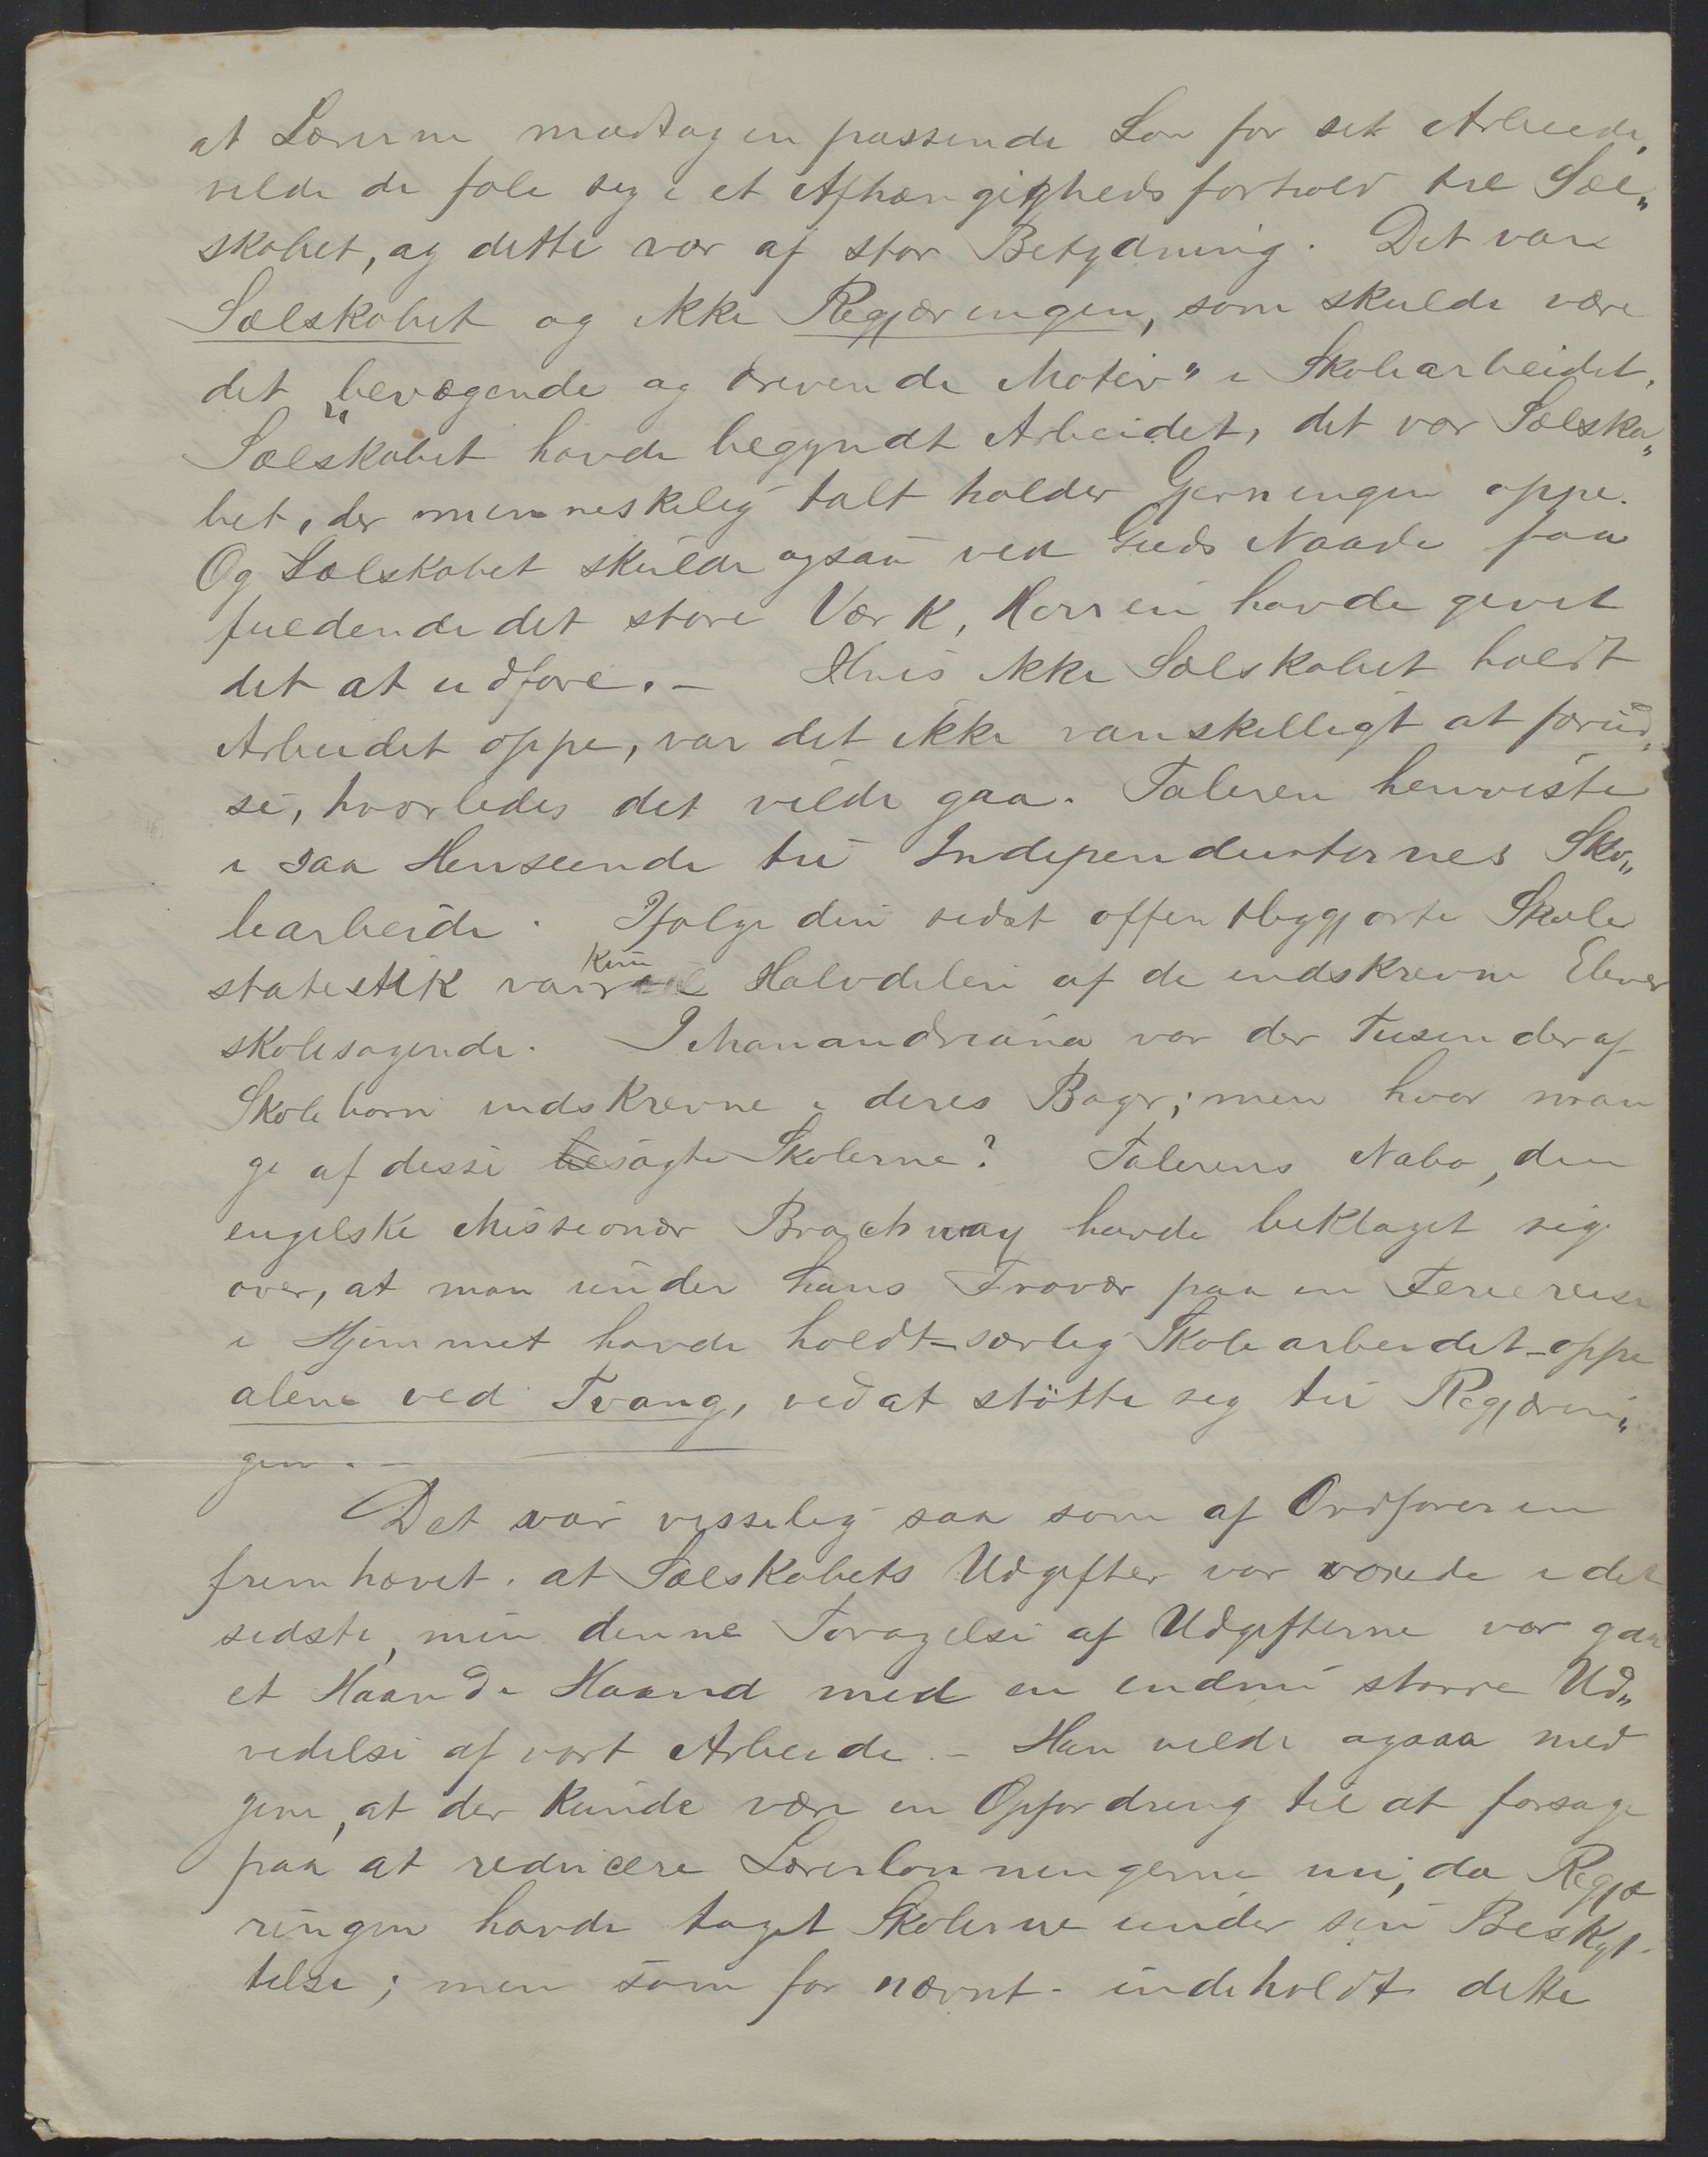 at Lærerne modtog en passende Løn for sit Arbeide,
vilde de føle sig i et Afhængighedsforhold til Sæl„
skabet, og dette var af stor Betydning. Det var
Sælskabet og ikke Regjæringen, som skulde være
det „bevægende og drivende Motiv" i Skolearbeidet.
Sælskabet havde begyndt Arbeidet, det var Sælska„
bet, der menneskelig talt holder Gjerningen oppe.
Og Sælskabet skulde ogsaa ved Guds Naade faa
fuldende det store Værk, Herren havde givet
det at udføre. – Hvis ikke Sælskabet holdt
Arbeidet oppe, var det ikke vanskelligt at forud„
se, hvorledes det vilde gaa. Taleren henviste
i saa Henseende til Independenternes Sko„
learbeide. Ifølge den sidst offentliggjorte Skole
statestik var kun Halvdelen af de indskrevne Elever
skolesøgende. I Manandriana var der Tusinder af
Skolebørn indskrevne i deres Bøger; men hvor man
ge af disse besøgte Skolerne? Talerens Nabo, den
engelske Missionær Brockway havde beklaget sig
over, at man under hans Fravær paa en Feriereise
i Hjemmet havde holdt – særlig Skolearbeidet – oppe
alene ved Tvang, ved at støtte sig til Regjærin„
gen. –
Det var visselig saa som af Ordføreren
fremhævet, at Sælskabets Udgifter var voxede i det
sidste, men denne Forøgelse af Udgifterne var gaa
et Haand i Haand med en endnu større Ud„
videlse af vort Arbeide. – Han vilde ogsaa med
give, at der kunde være en Opfordring til at forsøge
paa at reducere Lærerlønningerne nu, da Regjæ
ringen havde taget Skolerne under sin Beskyt-
telse; men som før nævnt – indeholdt dette